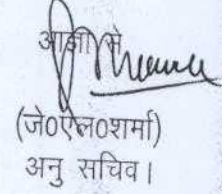 आज्ञा से
(जे०एल०शर्मा)
अनु सचिव।